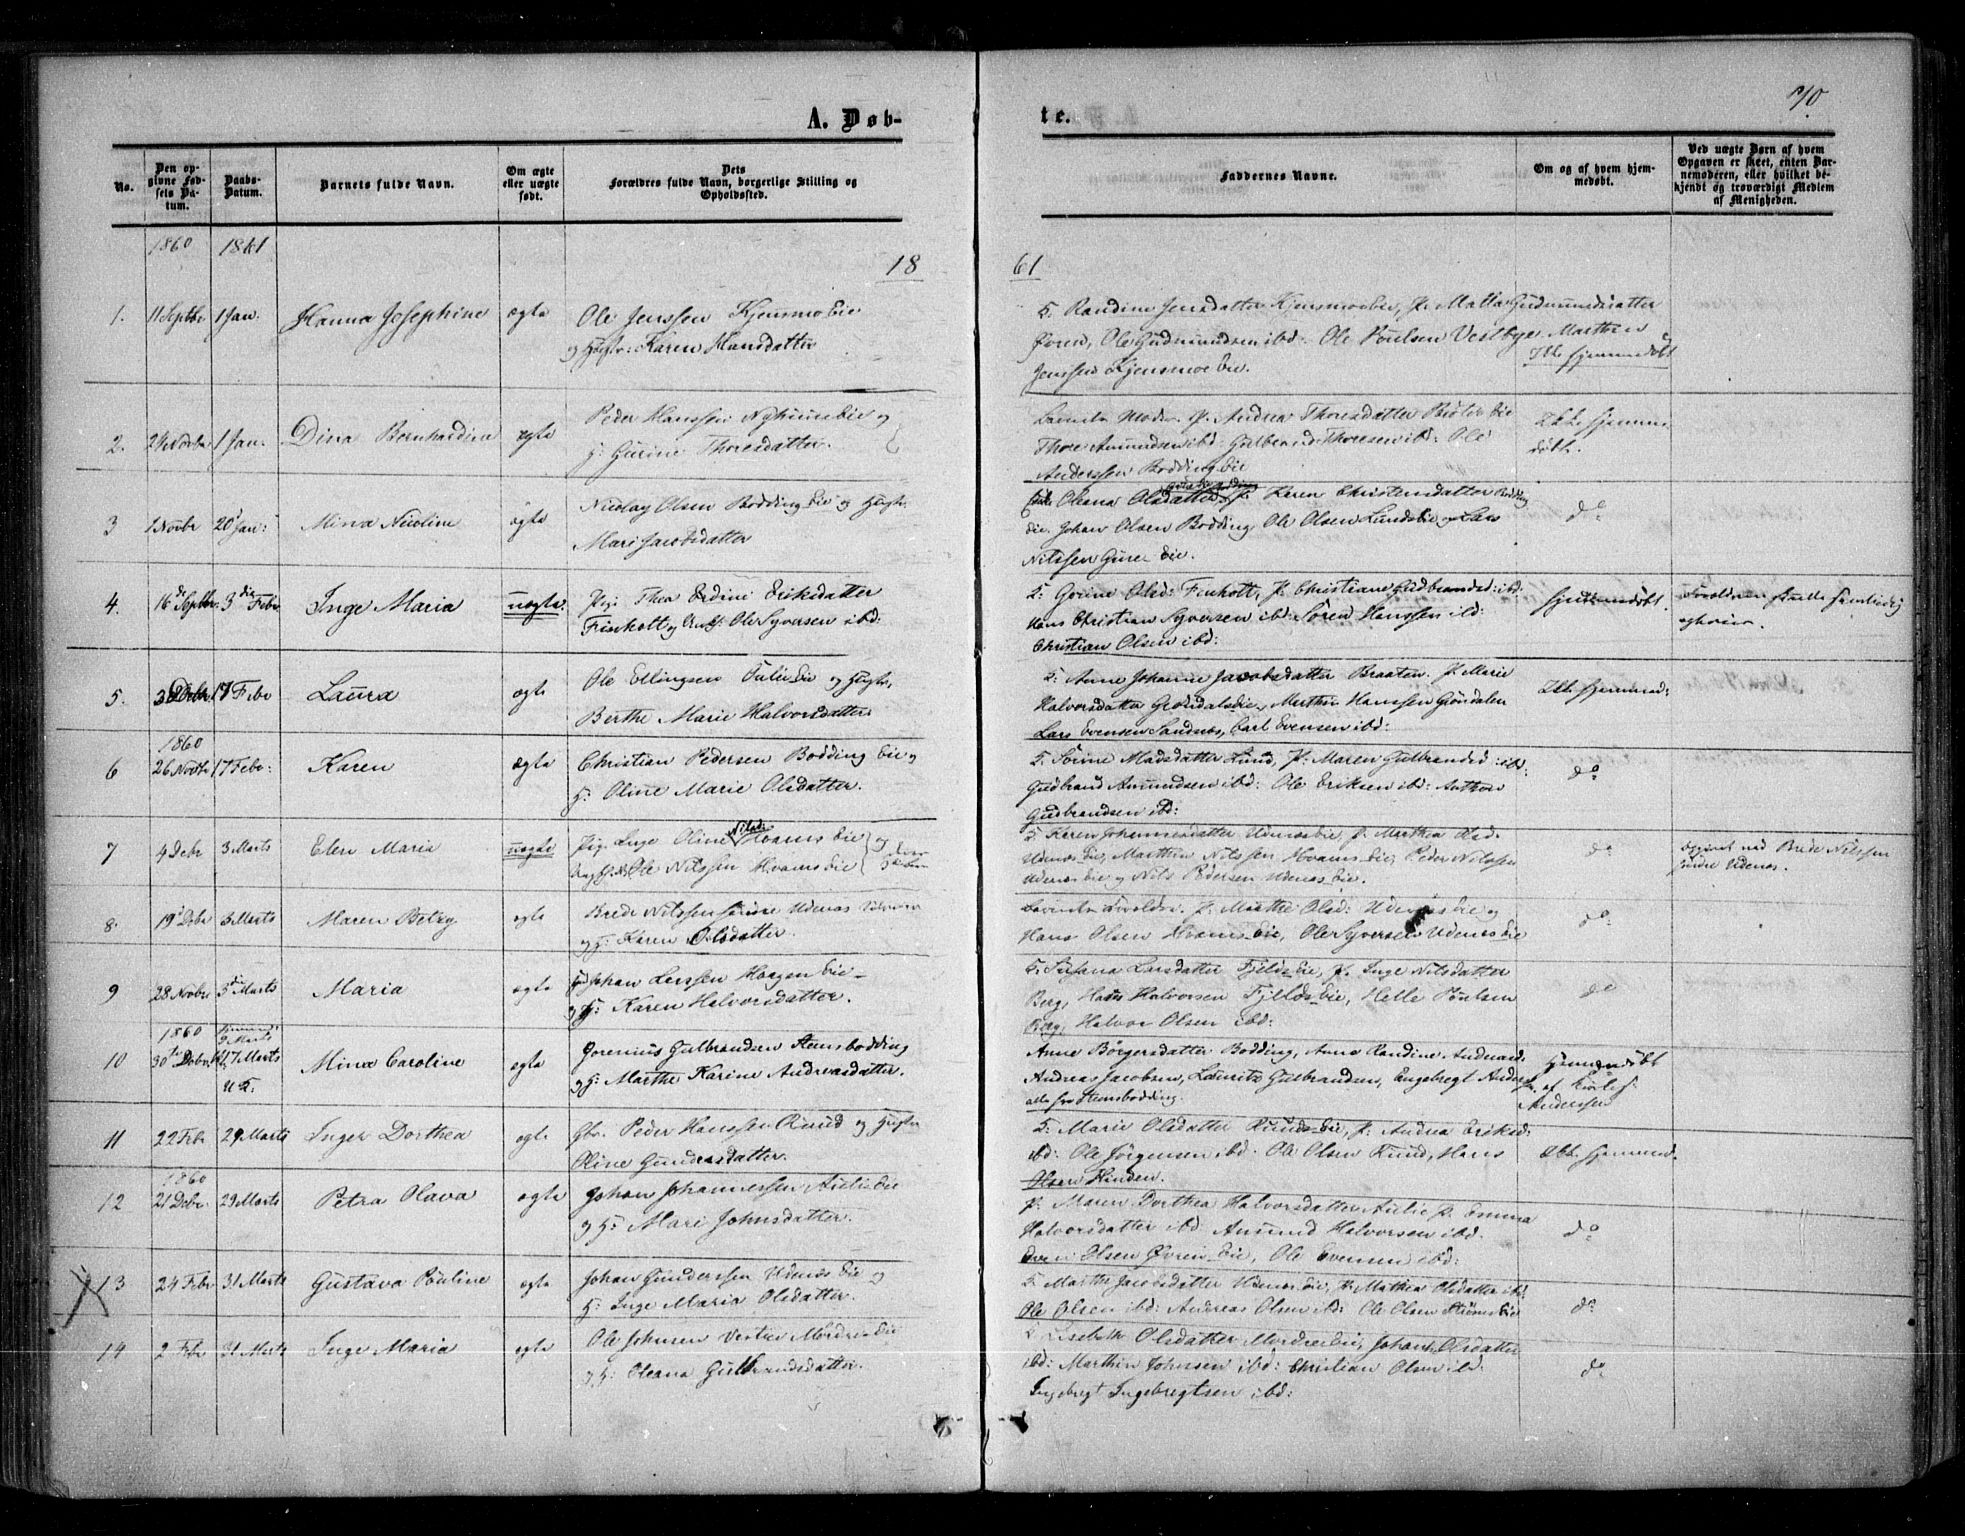 70
A. Døb-
te.
No.
Den op-
givne Fød-
sels Da-
tum.
Daabs-
Datum.
Barnets fulde Navn.
Om ægte
eller uægte
født.
Dets
Forældres fulde Navn, borgerlige Stilling og
Opholdssted.
Faddernes Navne.
Om og af hvem hjem-
medøbt.
Ved uægte Børn af hvem
Opgaven er skeet, enten Bar-
nemoderen, eller hvilket be-
kjendt og troværdigt Medlem
af Menigheden.
1860 1861
18 61
1. 11 Septbr 1 Jan. Hanna Josephine ægte
Ole Jenssen Kjensmoeie
og Hustr: Karen Hansdatter
Randine Jensdatter Kjensmoeeie, P. Mathea Gudmundsdatter
Øvren, Ole Gudmundsen ibd: Ole Poulsen Vestbye Marthin
Jenssen Kjensmoe Eie.
Ikke hjemmedøbt
2. 1 Jan. Dina Bernhardina ægte
Peder Hanssen Eie og
H: Gurine Thoresdatter.
Moder. P. Andrea Thoresdatter Eie
Thore Amundsen ibd: Gulbrand Thoresen ibd: Ole
Anderssen Bodding Eie
Ikke hjemme-
døbt.
3 1 Novbr 20 Jan: Mina Nicoline ægte
Nicolay Olsen Bodding Eie og Hustr.
Mari Jacobsdatter
Oleana Olsdatter P. Karen Christensdatter Bodding
Eie, Johan Olsen Bodding, Ole Olsen Lundseie og Lars
Nilssen Eie.
do
4. 16 Septbr. 3 Febr Inge Maria uægte.
Pige Thea Erdine Eriksdatter
Finholt og Ungk: Ole Syversen ibd:
Gorine Olsd: Finholt, P. Christiane Gudbrandsd: ibd:
Hans Christian Syversen ibd: Søren Hanssen ibd:
Christian Olsen ibd:
Hjemmedøbt.
5. 17 Febr Laura ægte
Ole Ellingsen Eie og Hustr,
Berthe Marie Halvorsdatter
Anne Johanne Jacobsdatter Braaten. P. Marie
Halvorsdatter Grøndalseie, Marthin Hanssen Grøndalen
Lars Evensen Sandnes, Carl Evensen ibd:
Ikke hjemmed:
1860
6 26 Novbr 17 Febr: Karen ægte
Christian Pedersen Bodding Eie og
H: Oline Marie Olsdatter.
Sørine Madsdatter Lund, P: Maren Gulbrandsd: ibd:
Gudbrand Amundsen ibd: Ole Eriksen ibd: Anthon
Gudbrandsen ibd:
do
7 4 Debr 3 Marts Elen Maria uægte
Pig. Inge Oline Nilsd: Hvams Eie og
Ole Nilssen Hvams Eie
Karen Johannesdatter Udenæs Eie, P. Marthea Olsd.
Udenæs Eie, Marthin Nilssen Hvams Eie, Peder Nilssen
Udenæs Eie og Nils Pedersen Udenæs Eie.
do
Brede Nilssen
søndre Udenæs.
8. 19 Debr 3 Marts Maren Betzy ægte
Brede Nilssen søndre Udenæs
og H: Karen Olsdatter.
P. Marthe Olsd: Udenæs Eie og
Hans Olsen Hvams Eie, Ole Syversen Udenæs Eie
do
9 28 Novbr 3 Marts Maria ægte
Johan Larssen Haagen Eie
og H: Karen Halvorsdatter.
Susana Larsdatter Fjelds Eie, P. Inge Nilsdatter
Berg, Hans Halvorsen Fjelds Eie, Helle Poulsen
Berg, Halvor Olsen ibd:
do
1860
10 30 Debr 17 Marts Mina Caroline ægte
Gorenius Gulbrandsen Stensbodding
og H: Marthe Karine Andreasdatter.
Anne Børgersdatter Bodding, Anne Randine Andreasd:
Andreas Jacobsen, Lauritz Gulbrandsen, Engebregt Anders:
alle fra Stensbodding.
Hjemmedøbt
af
Anderssen
11 22 Febr 29 Marts Inger Dorthea ægte
Gbr. Peder Hanssen Ruud og Hustr
Oline Gundersdatter.
Marie Olsdatter Ruuds Eie, P. Andrea Eriksd:
ibd: Ole Jørgensen ibd. Ole Olsen Ruud, Hans
Olsen Hinden.
Ikke hjemmed.
1860
12 21 Debr. 29 Marts Petra Olava ægte
Johan Johannessen Aulie Eie
og H: Mari Johnsdatter.
P. Maren Dorthea Halvorsdatter Aulie P. Emma
Halvorsdatter ibd. Amund Halvorsen ibd.
Even Olsen Øvren Eie, Ole Evensen ibd:
do
13 24 Febr 31 Marts Gustava Pauline ægte
Johan Gunderssen Udenæs Eie og
H: Inge Maria Olsdatter.
Marthe Jacobsdatter Udenæs Eie, P. Mathea Olsdatter ibd:
Ole Olsen ibd: Andreas Olsen ibd: Ole Olsen Strøms Eie
do
14 2 Febr 31 Marts Inge Maria ægte
Ole Johnsen Vestre Mordre Eie
og H: Oleana Gulbrandsdatter.
Lisebeth Olsdatter Mordre Eie, Johanne Olsdatter
ibd: Marthin Johnsen ibd: Christian Olsen ibd.
Ingebregt Ingebregtsen ibd:
do